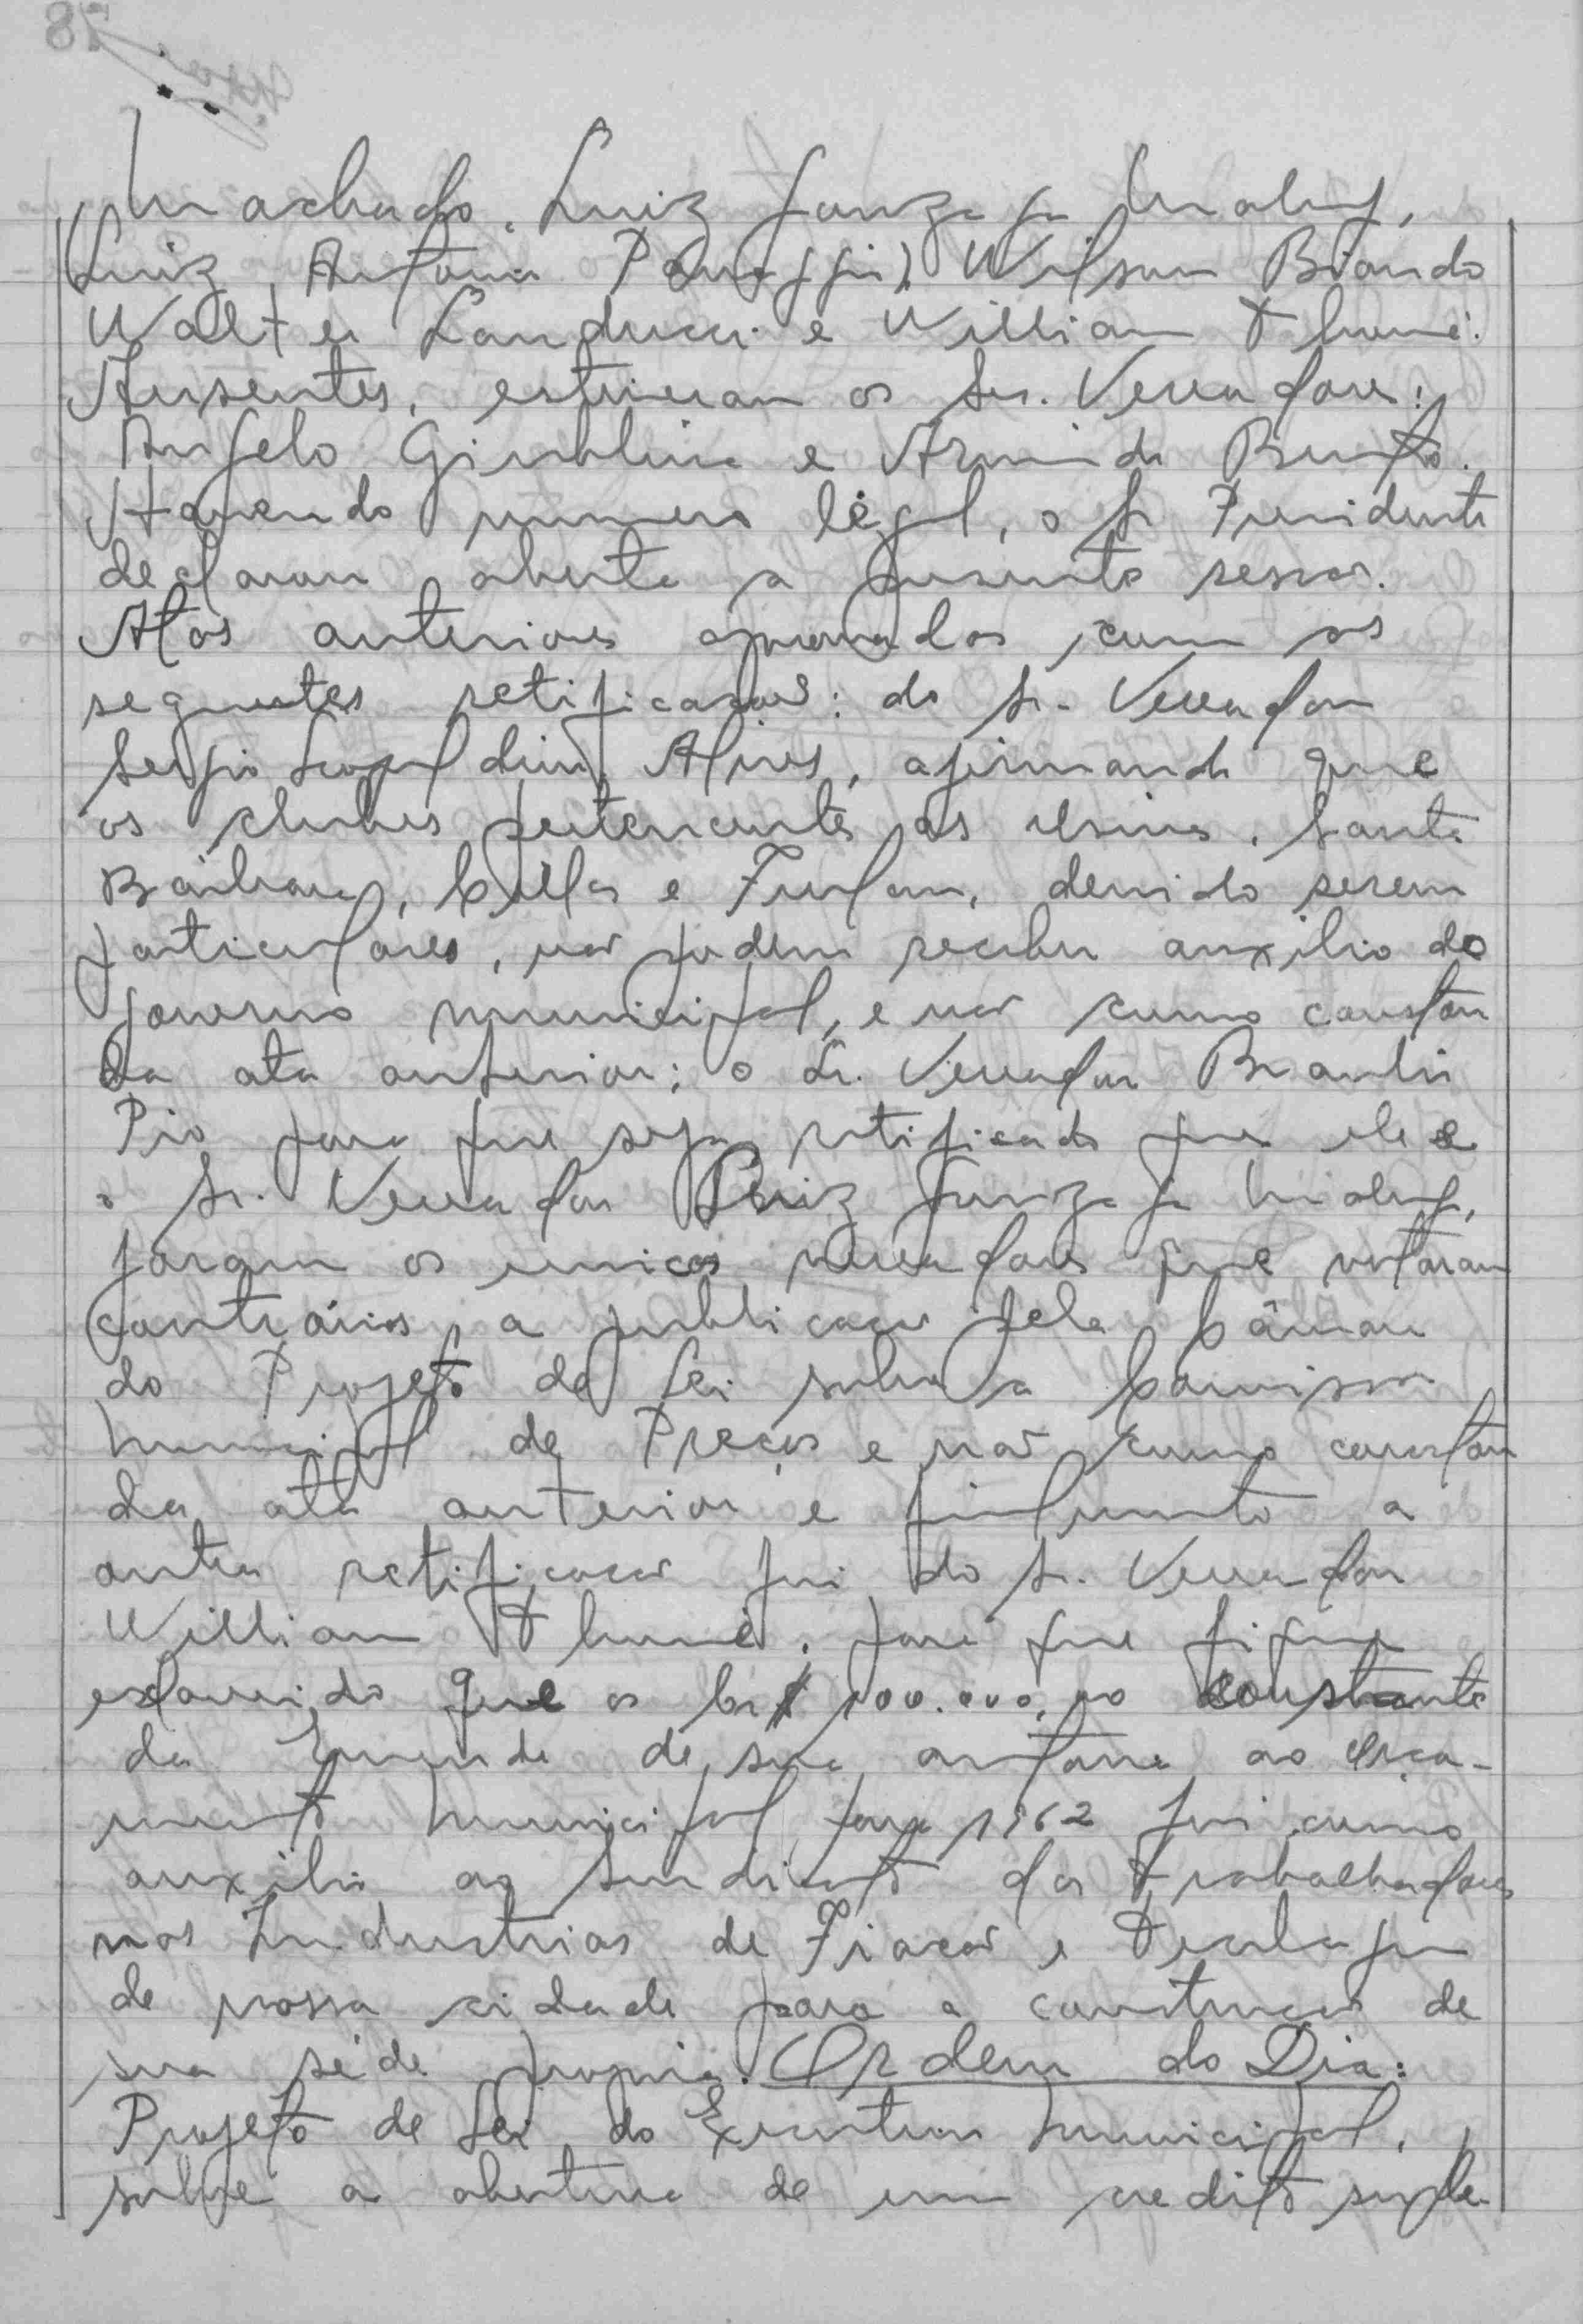 Machado, Luiz Gonzaga Maluf,
Luiz Antonio Panaggio, Wilson Biondo
Walter Landucci e Willian Thomé.
Ausentes, estiveram os Srs. Vereadores:
Angelo Giubbina e Armindo
Havendo numero légal, o Sr Presidente
declarou aberta a presente sessão.
Atas anteriores aprovadas com as
seguntes retificações: do Sr. Vereador
Sergio Leopoldino Alves, afirmando que
os clubes pertencentes as Usinas, Santa
Bárbara, Cillos e Furlan, devido serem
particulares, não podem receber auxilio do
governo municipal, e não como constou
da ata anterior; o Sr. Vereador Braulio
Pio para que seja retificado que ele e
o Sr. Vereador Luiz Gonzaga Maluf,
foram os unicos vereadores que votaram
contrários a publicação pela Câmara
do Projeto de Lei sobre a Comissão
Municipal de Preços e não como constou
da ata anterior e finalmente a
outra retificação foi do Sr. Vereador
Willian Thomé, para que fique
esclarecido que os Cr$ 100.000,00 constante
da Emenda de sua autoria ao orça-
mento Municipal para 1962 foi como
auxilio ao Sindicato dos Trabalhadores
nas Industrias de Fiação e Tecelagem
de nossa cidade para a construção de
sua séde propria. Ordem do Dia:
Projeto de Lei do Executivo Municipal,
sobre a abertura de um credito suple-